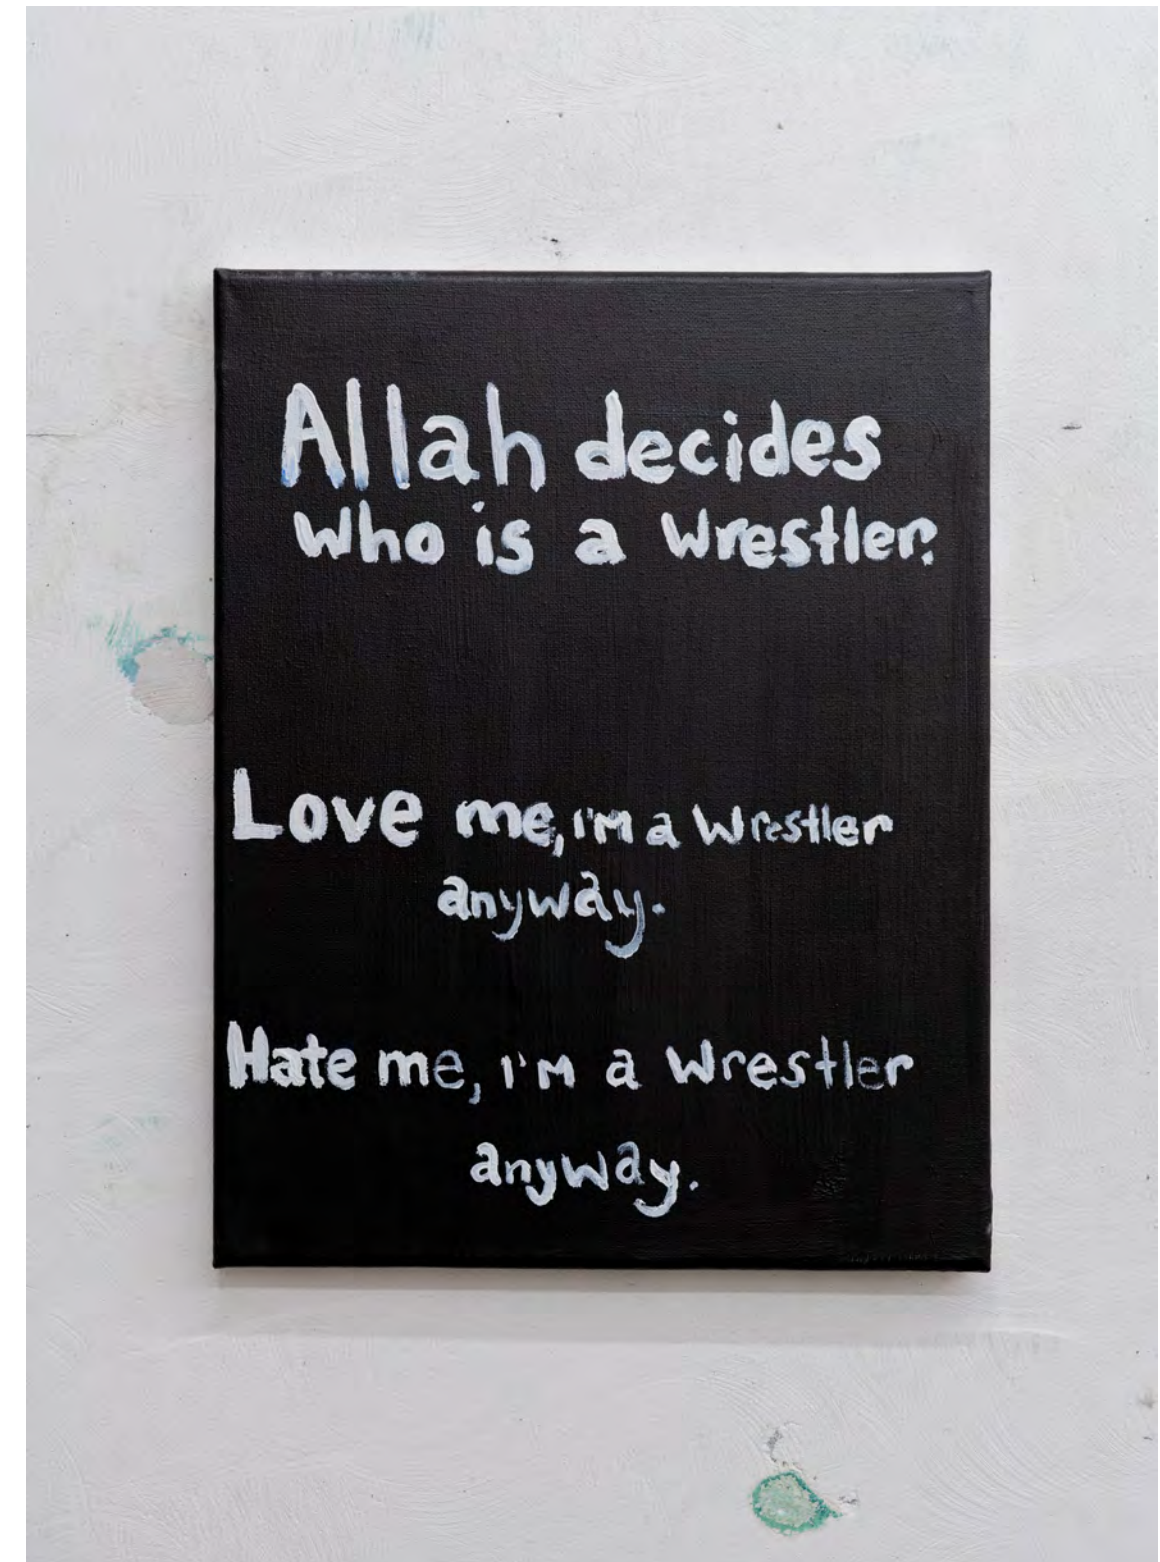 Allah decides
who is a wrestler.
Love me, i'm a wrestler
anyway.
Hate me, i'm a wrestler
anyway.